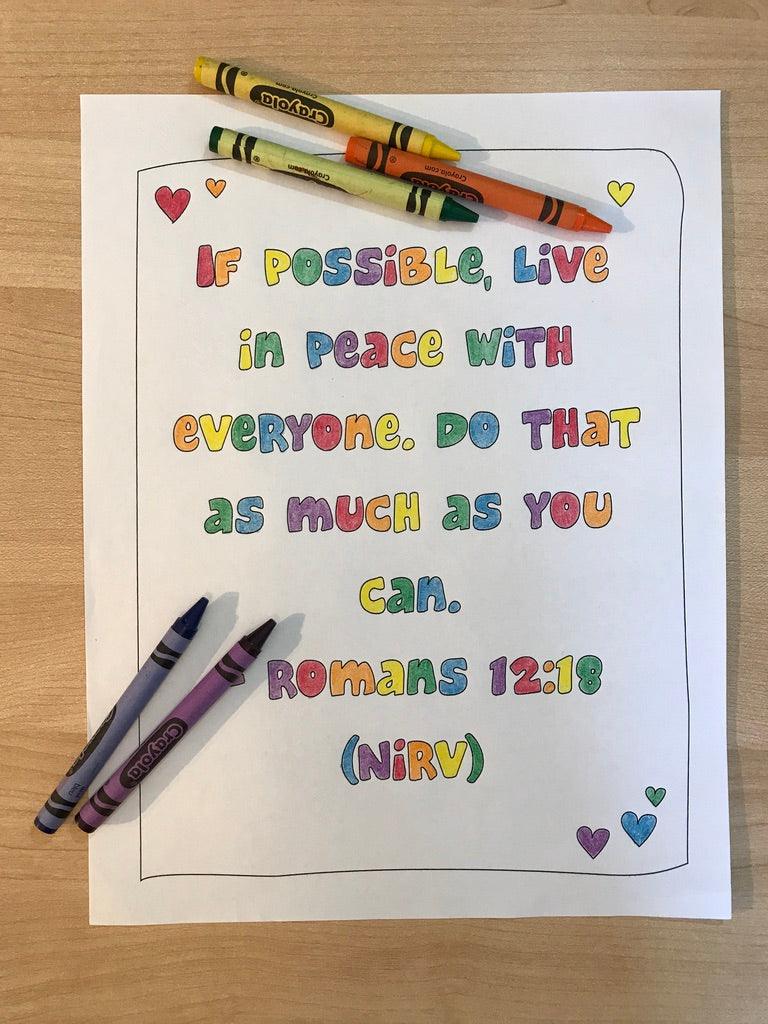 Crayola
Crayola.com
Crayola.com
Crayola.com
IF POSSiBLe, Live
in Peace WiTH
everyone. DO THaT
as mUCH as YOU
can.
Romans 12:18
(NiRV)
Crayola
Crayola
blu